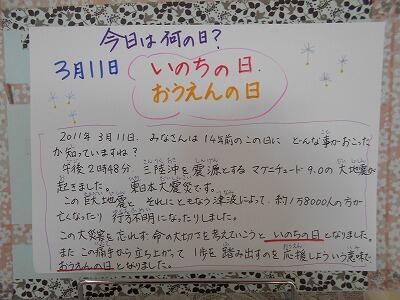 今日は何の日?
3月11日
いのちの日
おうえんの日
2011年 3月11日. みなさんは 14年前のこの日に どんな事がおこった
か知っていますね?
午後 2時48分. 三陸沖を震源とする マグニチュード 9.0の 大地震が
起きました。 東日本大震災です。
この 巨大地震と それにともなう 津波によって. 約1万8000人の方が
亡くなったり 行方不明になったりしました。
この大災害を忘れず. 命の大切さを考えていこうと いのちの日となりました。
また この痛手から立ち上がって 1歩を踏み出すのを 応援しよういう意味で
おうえんの日となりました。